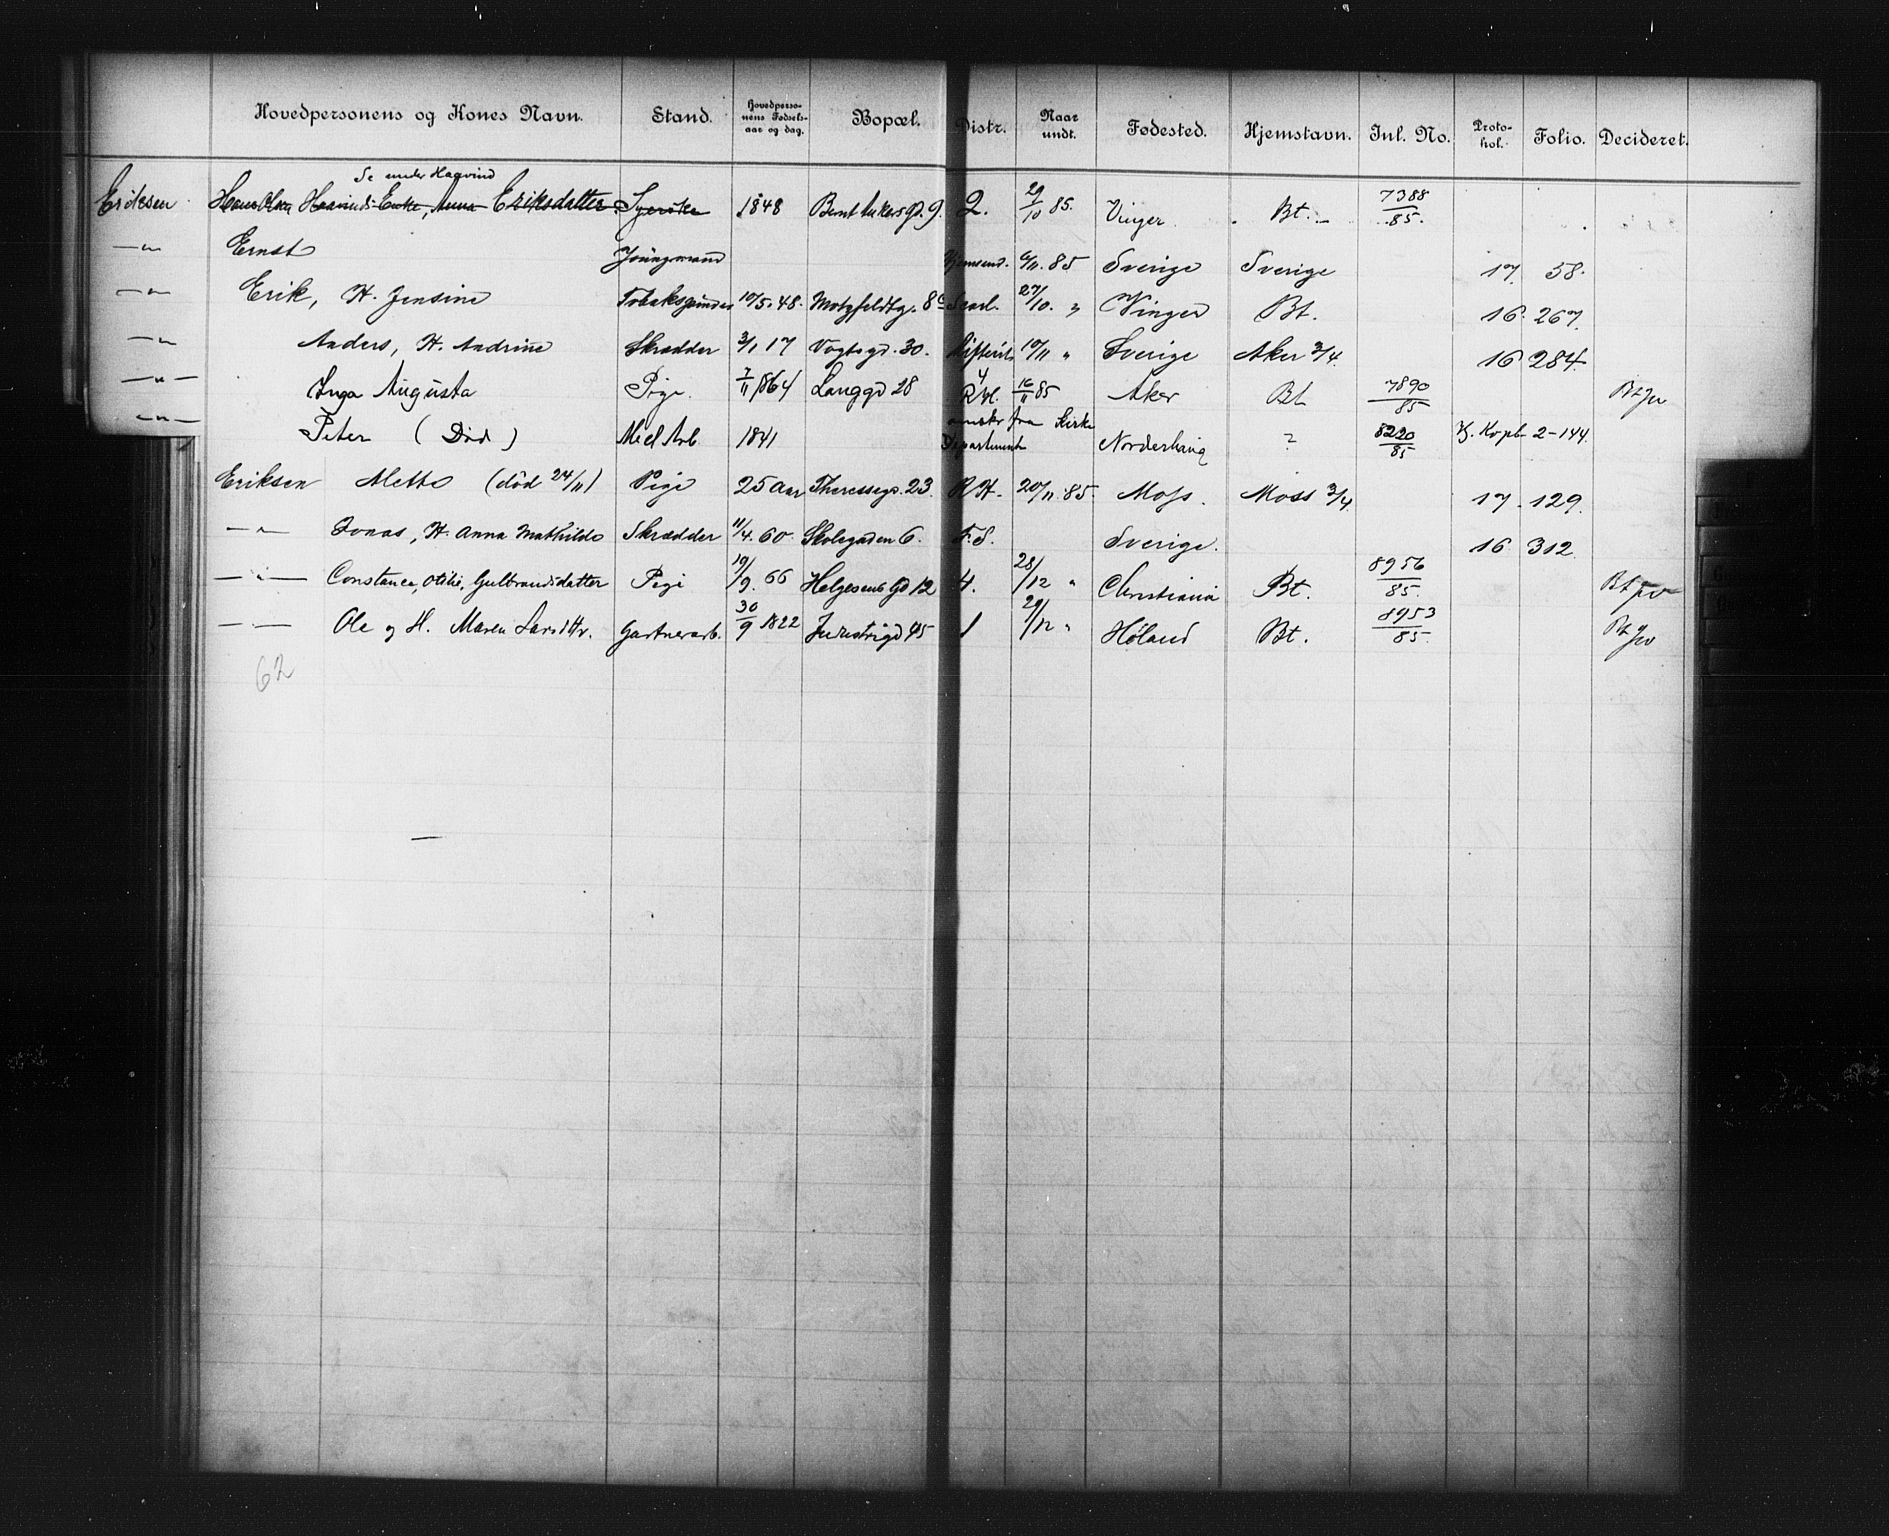 Hovedpersonens og Kones Navn. Stand. Hovedpersonens Fødselsaar og dag. Bopæl. Distr. Naar undt. Fødested. Hjemstavn. Inl. No. Protohol. Folio. Decideret.
Se under Haavind
Eriksen Anna Eriksdatter. Syerske 1848 Bent Ankers gd. 9. 2. 29/10 85. Vinger Bt. 7388/85.
—"— Ernst Jóungmand Hjemsend. 6/11. 85 Sverige Sverige 17. 58.
—"— Erik, H. Jensine Tobakspinder 10/5. 48. Motzfeldtg. 8c 27/10. " Vinger Bt. 16. 267.
—"— Anders, H. Andrine Skrædder 3/1 17 Vogtsgd. 30. 10/11 " Sverige Aker 3/4. 16 284.
—"— Inga Augusta Pige. 7/11 1864 Langgd 28 4 R.H. 16/11 85 Aker Bt 7890/85
—"— Peter (Død) Med Arb. 1841 fra Kirke Departement Norderhaug ? 8220/85 2-144.
Eriksen Mette (død 24/11) Pige 25 Aar Theresesgd. 23. R H. 20/11. 85. Moss. Moss 3/4 17. 129.
—"— Jonas, H. Anna Mathilde Skrædder 11/4. 60. Skolegaden 6. F. S. Sverige. 16 312.
—"— Constance, Otilie, Gulbrandsdatter Pige 19/9. 66 Helgesens Gd 12 4. 28/12 " Christiania Bt. 8956/85.
—"— Ole og H. Maren Larsdtr. Gartnerarb. 30/9 1822 Industrigd 45 1 29/12 " Høland Bt. 8953/85.
62